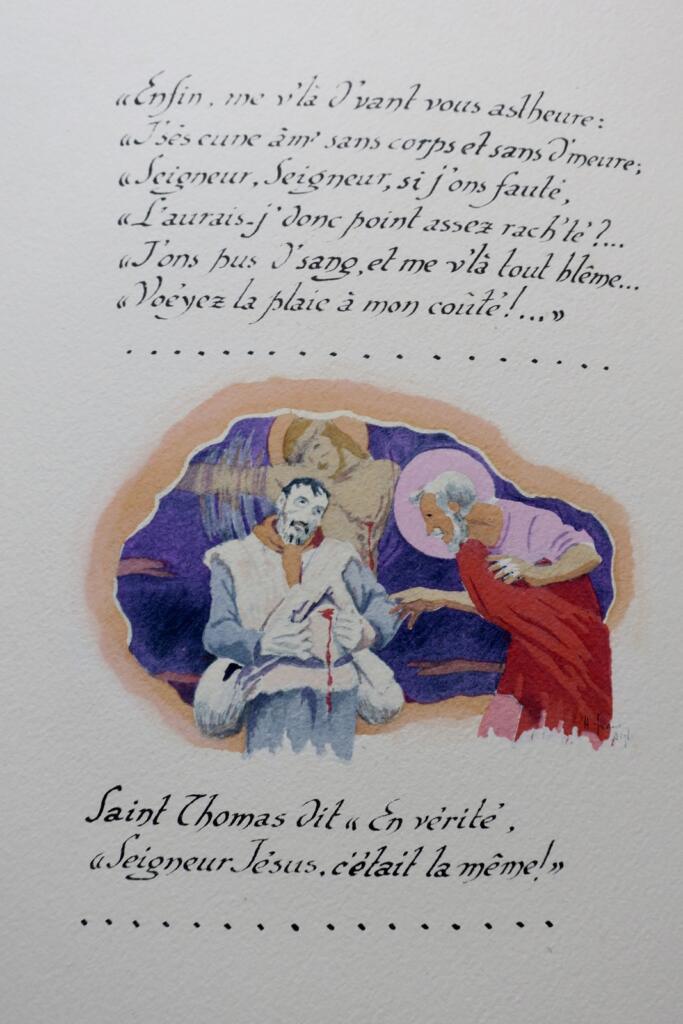 «Enfin, me v'là d'vant vous astheure:
«J'sés eune âm' sans corps et sans d'meure;
«Seigneur, Seigneur, si j'ons fauté,
«L'aurais-j' donc point assez rach'té?...
«J'ons pus d'sang, et me v'là tout blême...
«Voéyez la plaie à mon coûté!...»
Saint Thomas dit «En vérité,
«Seigneur Jésus, c'était la même!»